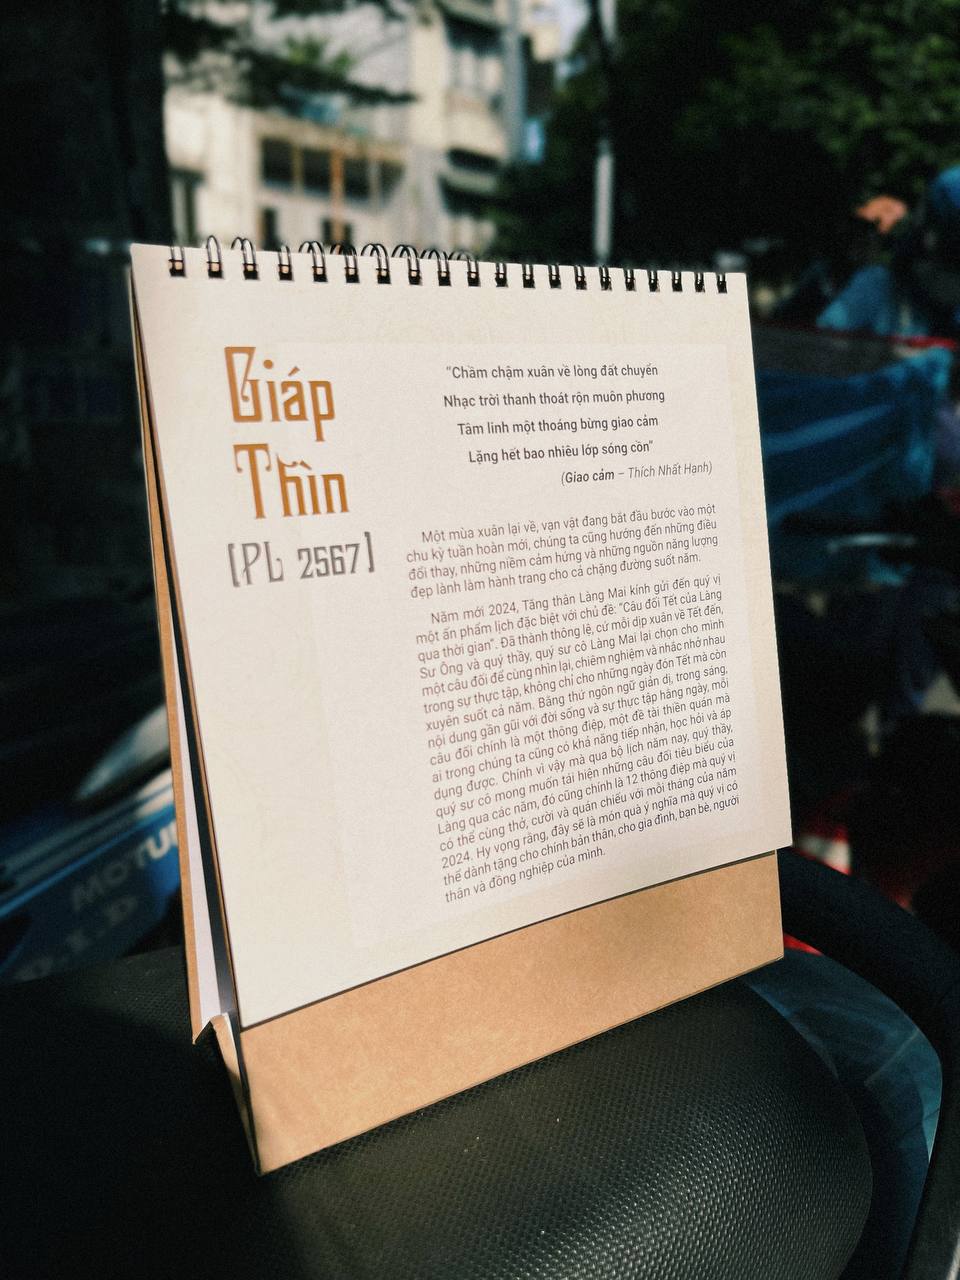 Giáp
Thìn
[PL 2567]
"Chầm chậm xuân về lòng đất chuyển
Nhạc trời thanh thoát rộn muôn phương
Tâm linh một thoáng bừng giao cảm
Lặng hết bao nhiêu lớp sóng cồn"
(Giao cảm – Thích Nhất Hạnh)
Một mùa xuân lại về, vạn vật đang bắt đầu bước vào một
chu kỳ tuần hoàn mới, chúng ta cũng hướng đến những điều
đổi thay, những niềm cảm hứng và những nguồn năng lượng
đẹp lành làm hành trang cho cả chặng đường suốt năm.
Năm mới 2024, Tăng thân Làng Mai kính gửi đến quý vị
một ấn phẩm lịch đặc biệt với chủ đề: "Câu đối Tết của Làng
qua thời gian". Đã thành thông lệ, cứ mỗi dịp xuân về Tết đến,
Sư Ông và quý thầy, quý sư cô Làng Mai lại chọn cho mình
một câu đối để cùng nhìn lại, chiêm nghiệm và nhắc nhở nhau
trong sự thực tập, không chỉ cho những ngày đón Tết mà còn
xuyên suốt cả năm. Bằng thứ ngôn ngữ giản dị, trong sáng,
nội dung gần gũi với đời sống và sự thực tập hằng ngày, mỗi
câu đối chính là một thông điệp, một đề tài thiền quán mà
ai trong chúng ta cũng có khả năng tiếp nhận, học hỏi và áp
dụng được. Chính vì vậy mà qua bộ lịch năm nay, quý thầy,
quý sư cô mong muốn tái hiện những câu đối tiêu biểu của
Làng qua các năm, đó cũng chính là 12 thông điệp mà quý vị
có thể cùng thở, cười và quán chiếu với mỗi tháng của năm
2024. Hy vọng rằng, đây sẽ là món quà ý nghĩa mà quý vị có
thể dành tặng cho chính bản thân, cho gia đình, bạn bè, người
thân và đồng nghiệp của mình.
MOTUL